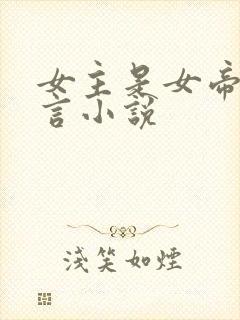 女主是女帝
言小說
淺笑如煙